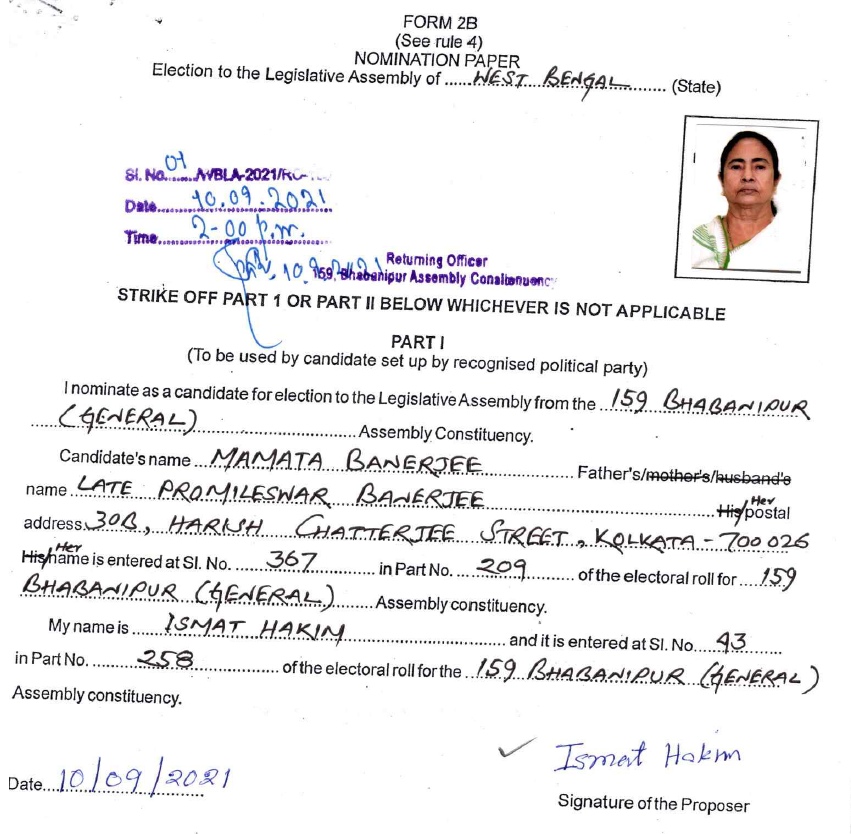 FORM 2B
(See rule 4)
NOMINATION PAPER
Election to the Legislative Assembly of ......WEST BENGAL.......... (State)
Sl. No. 01 AVBLA-2021/
Date 10.09.2021
Time 2-00 p.m.
10.9.2021 Returning Officer
159, Bhabanipur Assembly Constituency
STRIKE OFF PART 1 OR PART II BELOW WHICHEVER IS NOT APPLICABLE
PART I
(To be used by candidate set up by recognised political party)
I nominate as a candidate for election to the Legislative Assembly from the ...159 BHABANIPUR
(GENERAL) Assembly Constituency.
Candidate's name ...MAMATA BANERJEE............... Father's/mother's/husband's
name LATE PROMILESWAR BANERJEE His/Her postal
address. 30B, HARISH CHATTERJEE STREET, KOLKATA - 700 026
His/Her name is entered at Sl. No. 367 in Part No. 209 of the electoral roll for 159
BHABANIPUR (GENERAL) Assembly constituency.
My name is ISMAT HAKIM and it is entered at Sl. No. 43
in Part No. 258 of the electoral roll for the 159 BHABANIPUR (GENERAL)
Assembly constituency.
Ismat Hakim
Date 10/09/2021
Signature of the Proposer